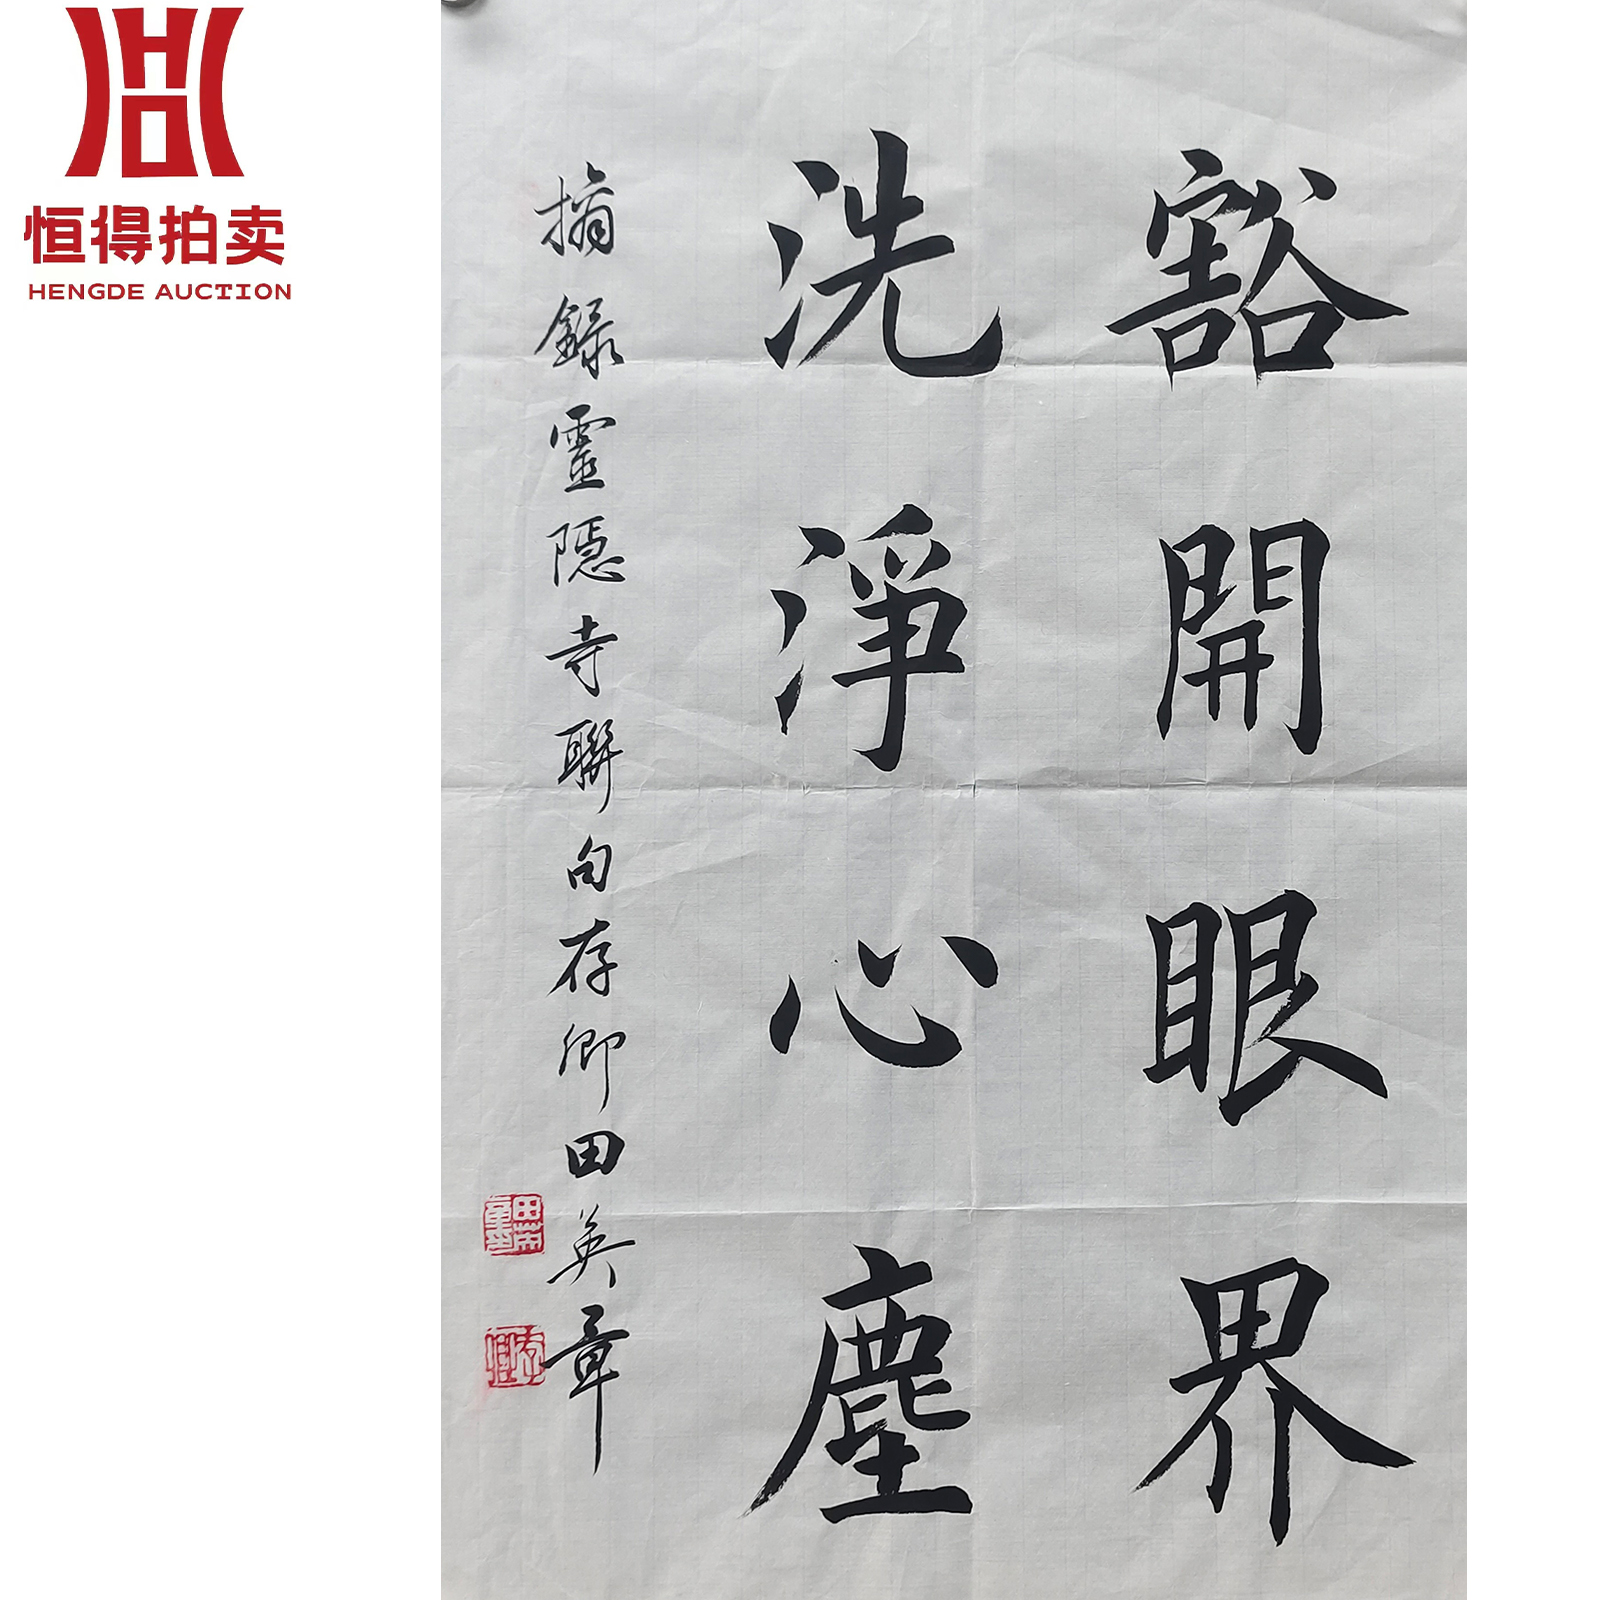 恒得拍卖
HENGDE AUCTION
豁開眼界
洗淨心塵
摘録靈隱寺聯句存卿田英章